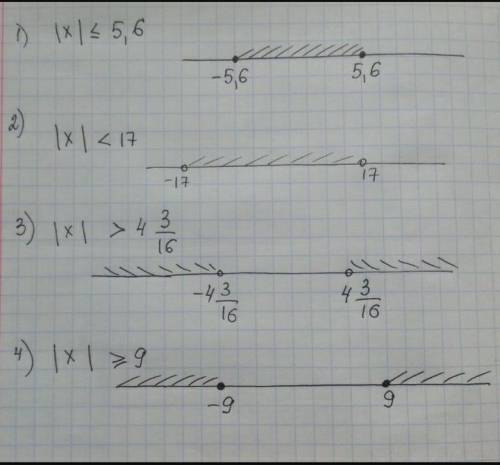 1) |x| ≤ 5,6
-5,6 5,6
2) |x| < 17
-17 17
3) |x| > 4 3/16
-4 3/16 4 3/16
4) |x| ≥ 9
-9 9